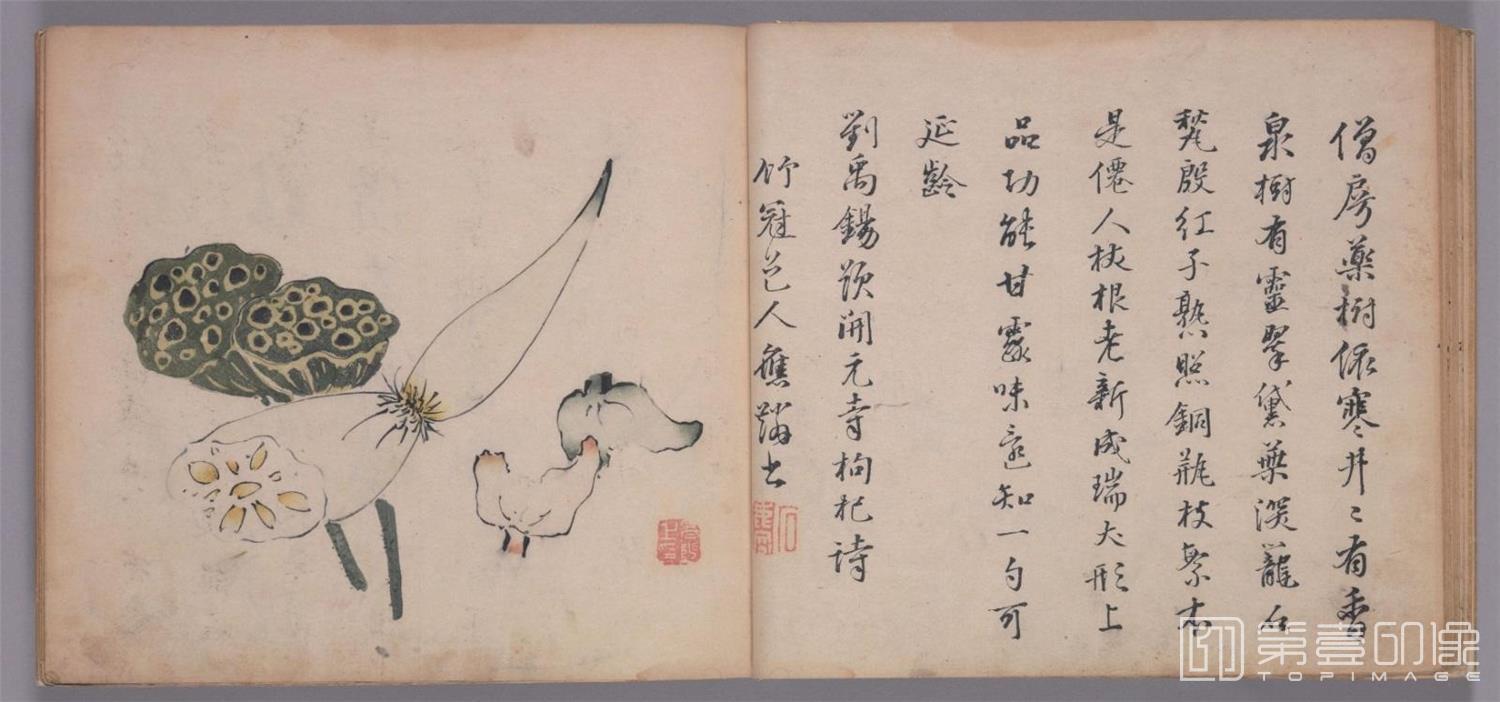 僧房藥樹依寒井〻有香
泉樹有靈翠黛葉深籠石
甃殷紅子熟照銅瓶枝繁本
是僊人杖根老新成瑞犬形上
品功能甘露味還知一勺可
延齡
劉禹錫題開元寺枸杞詩
竹冠人書
第壹印像
TOPIMAGE